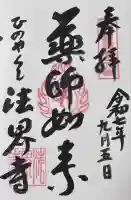 奉拝
令和七年九月五日
薬師如来
ひのやくし
法界寺